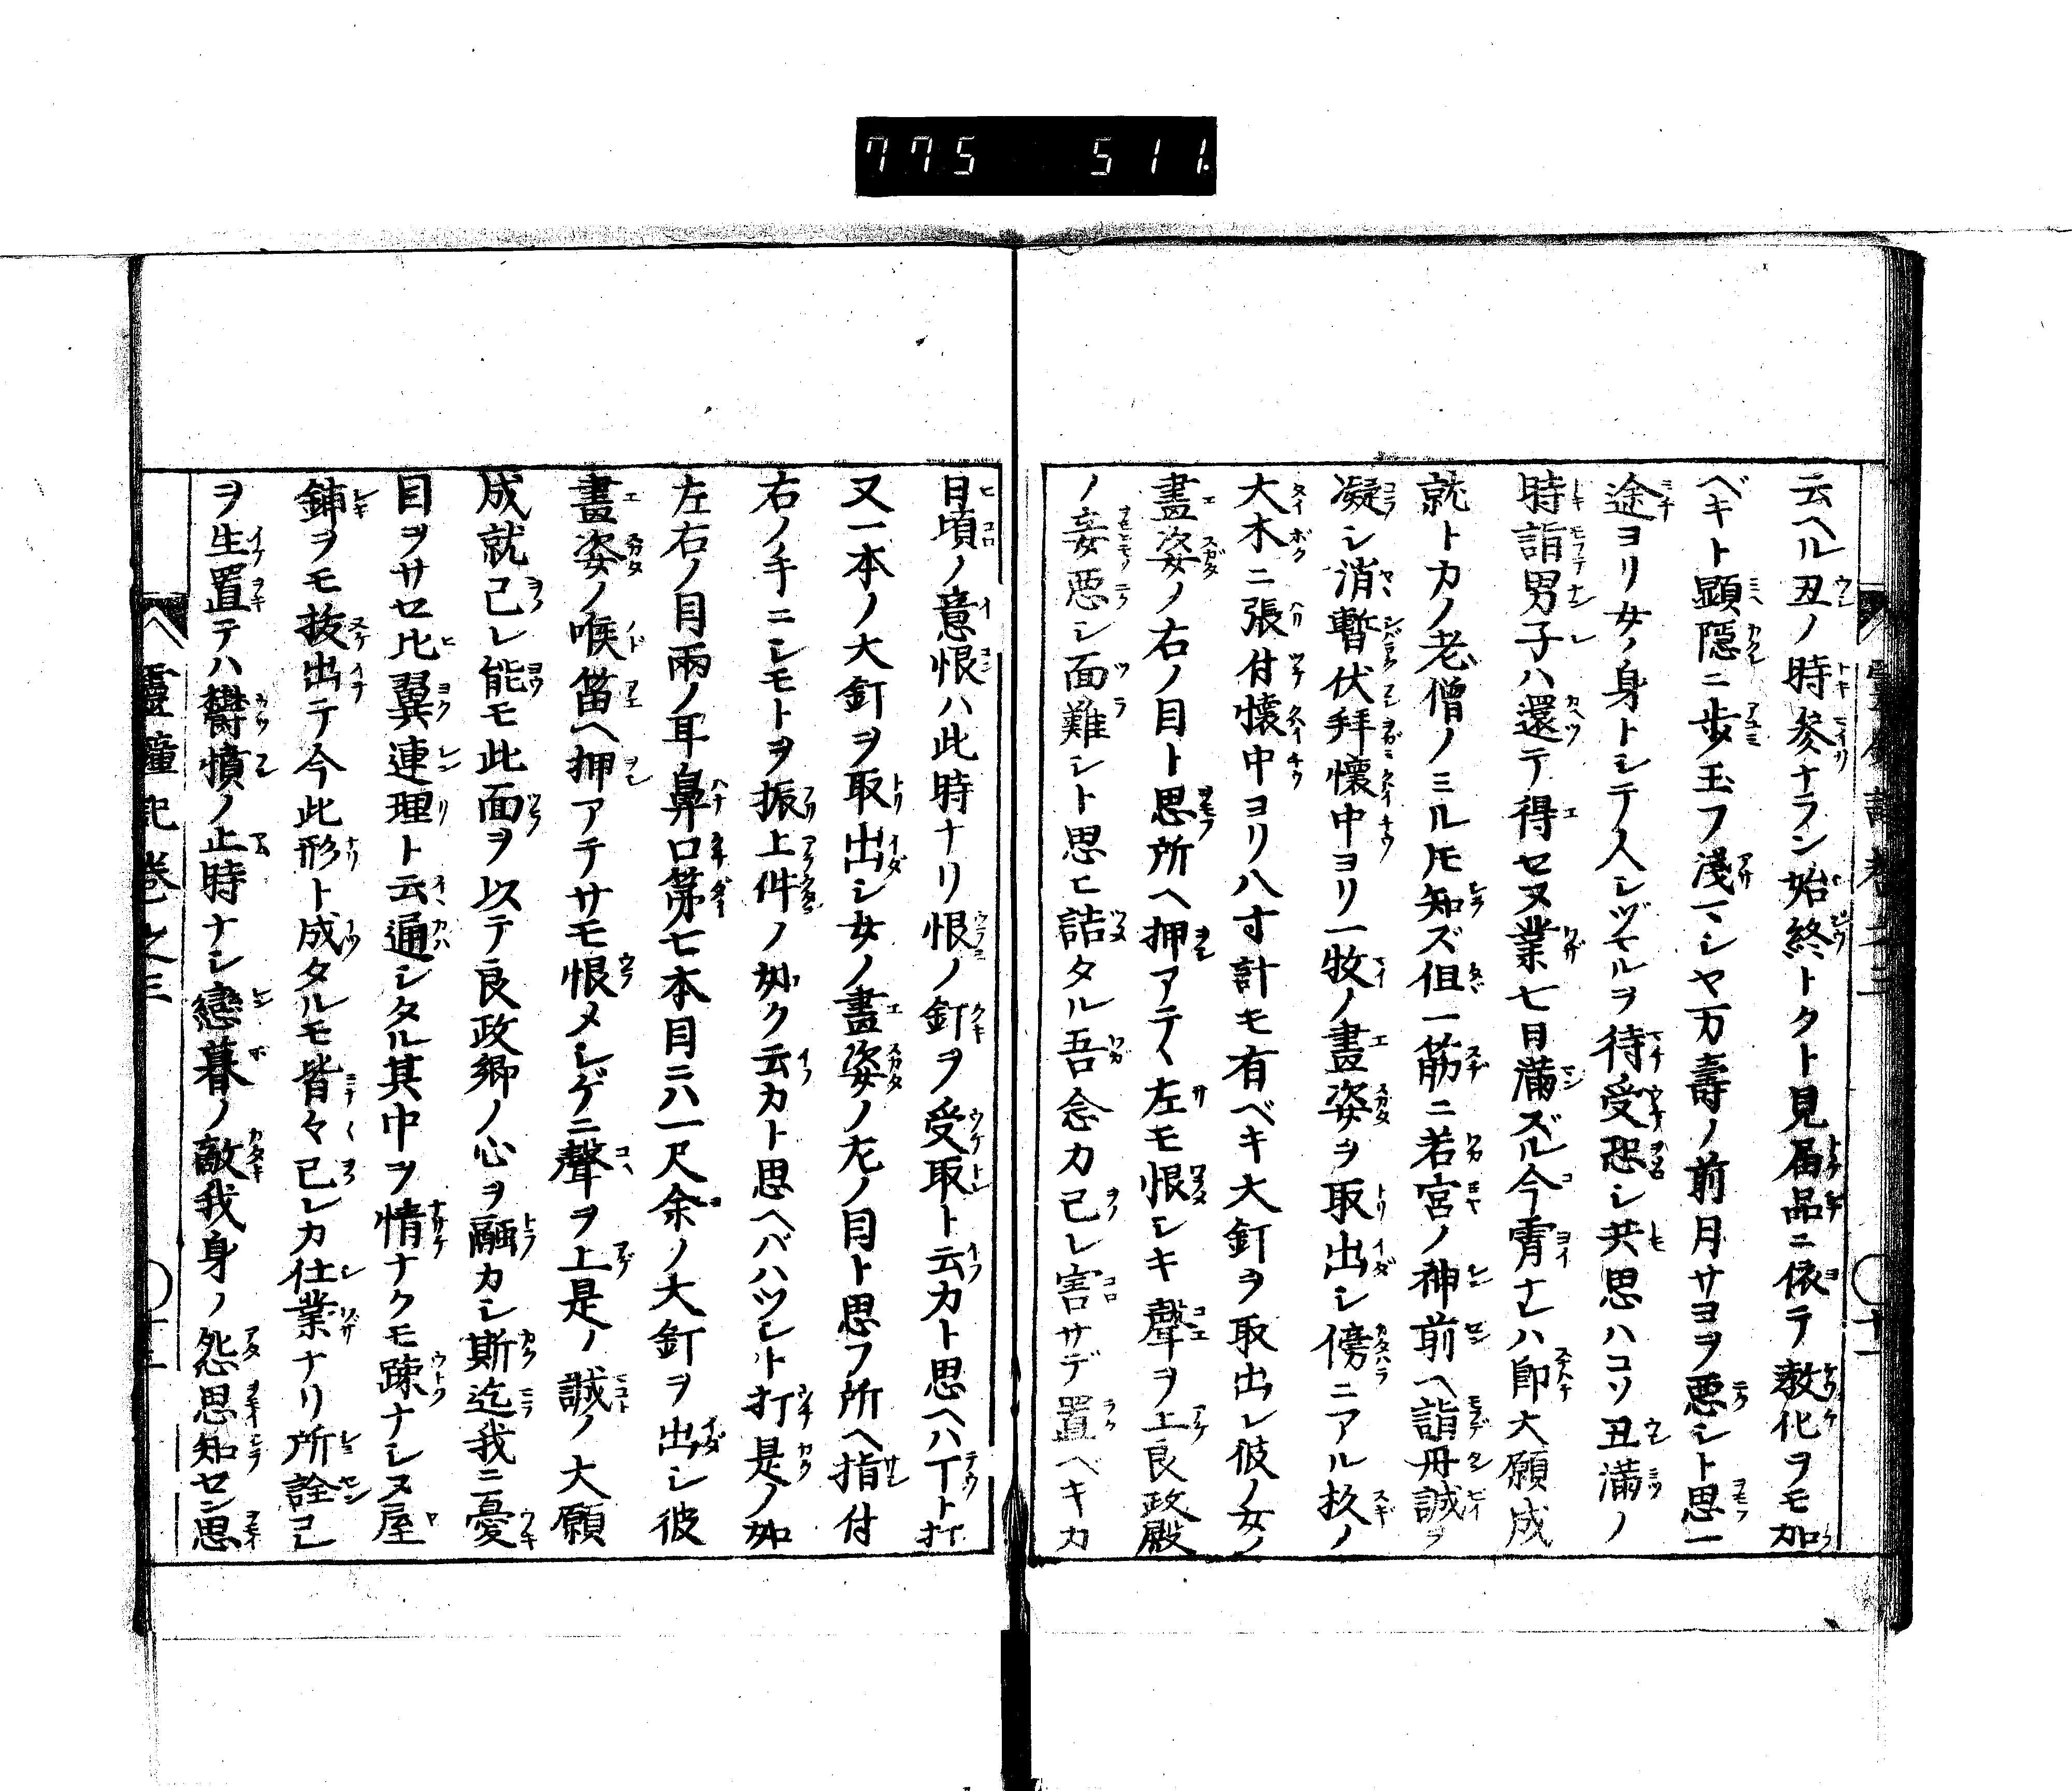 775 511.
云ヘル丑ノ時参ナラン始終トクト見届品ニ依テ教化ヲモ加
ベキト顕隠ニ歩玉フ淺マシヤ万壽ノ前月サヨヲ悪シト思一
途ヨリ女ノ身トシテ人シヅモルヲ待受恐シ共思ハコソ丑満ノ
時詣男子ハ還テ得セヌ業七日滿ズル今霄ナレハ即大願成
就トカノ老僧ノミルヿモ知ズ但一筋ニ若宮ノ神前ヘ詣丹誠ヲ
凝シ消暫伏拜懷中ヨリ一牧ノ畫姿ヲ取出シ傍ニアル杉ノ
大木ニ張付懷中ヨリ八寸計モ有ベキ大釘ヲ取出シ彼ノ女ノ
畫姿ノ右ノ目ト思所ヘ押アテヽ左モ恨シキ聲ヲ上良政殿
ノ妾悪シ面難シト思ヒ詰タル吾念カ己レ害サデ置ヘキカ
日頃ノ意恨ハ此時ナリ恨ノ釘ヲ受取ト云カト思ヘハ丁ト打
又一本ノ大釘ヲ取出シ女ノ畫姿ノ左ノ目ト思フ所ヘ指付
右ノ手ニシモトヲ振上件ノ如ク云カト思ヘバハツシト打是ノ如
左右ノ目兩ノ耳鼻口第七本目ニハ一尺余ノ大釘ヲ出シ彼
畫姿ノ喉笛ヘ押アテサモ恨メシゲニ聲ヲ上是ノ誠ノ大願
成就己レ能モ此面ヲ以テ良政郷ノ心ヲ融カシ斯迄我ニ憂
目ヲサセ比翼連理ト云通シタル其中ヲ情ナクモ疎ナシヌ屋
鋪ヲモ抜出テ今此形ト成タルモ皆々己レカ仕業ナリ所詮己
ヲ生置テハ欝憤ノ止時ナシ戀暮ノ敵我身ノ怨思知セン思
靈瞳記巻之三